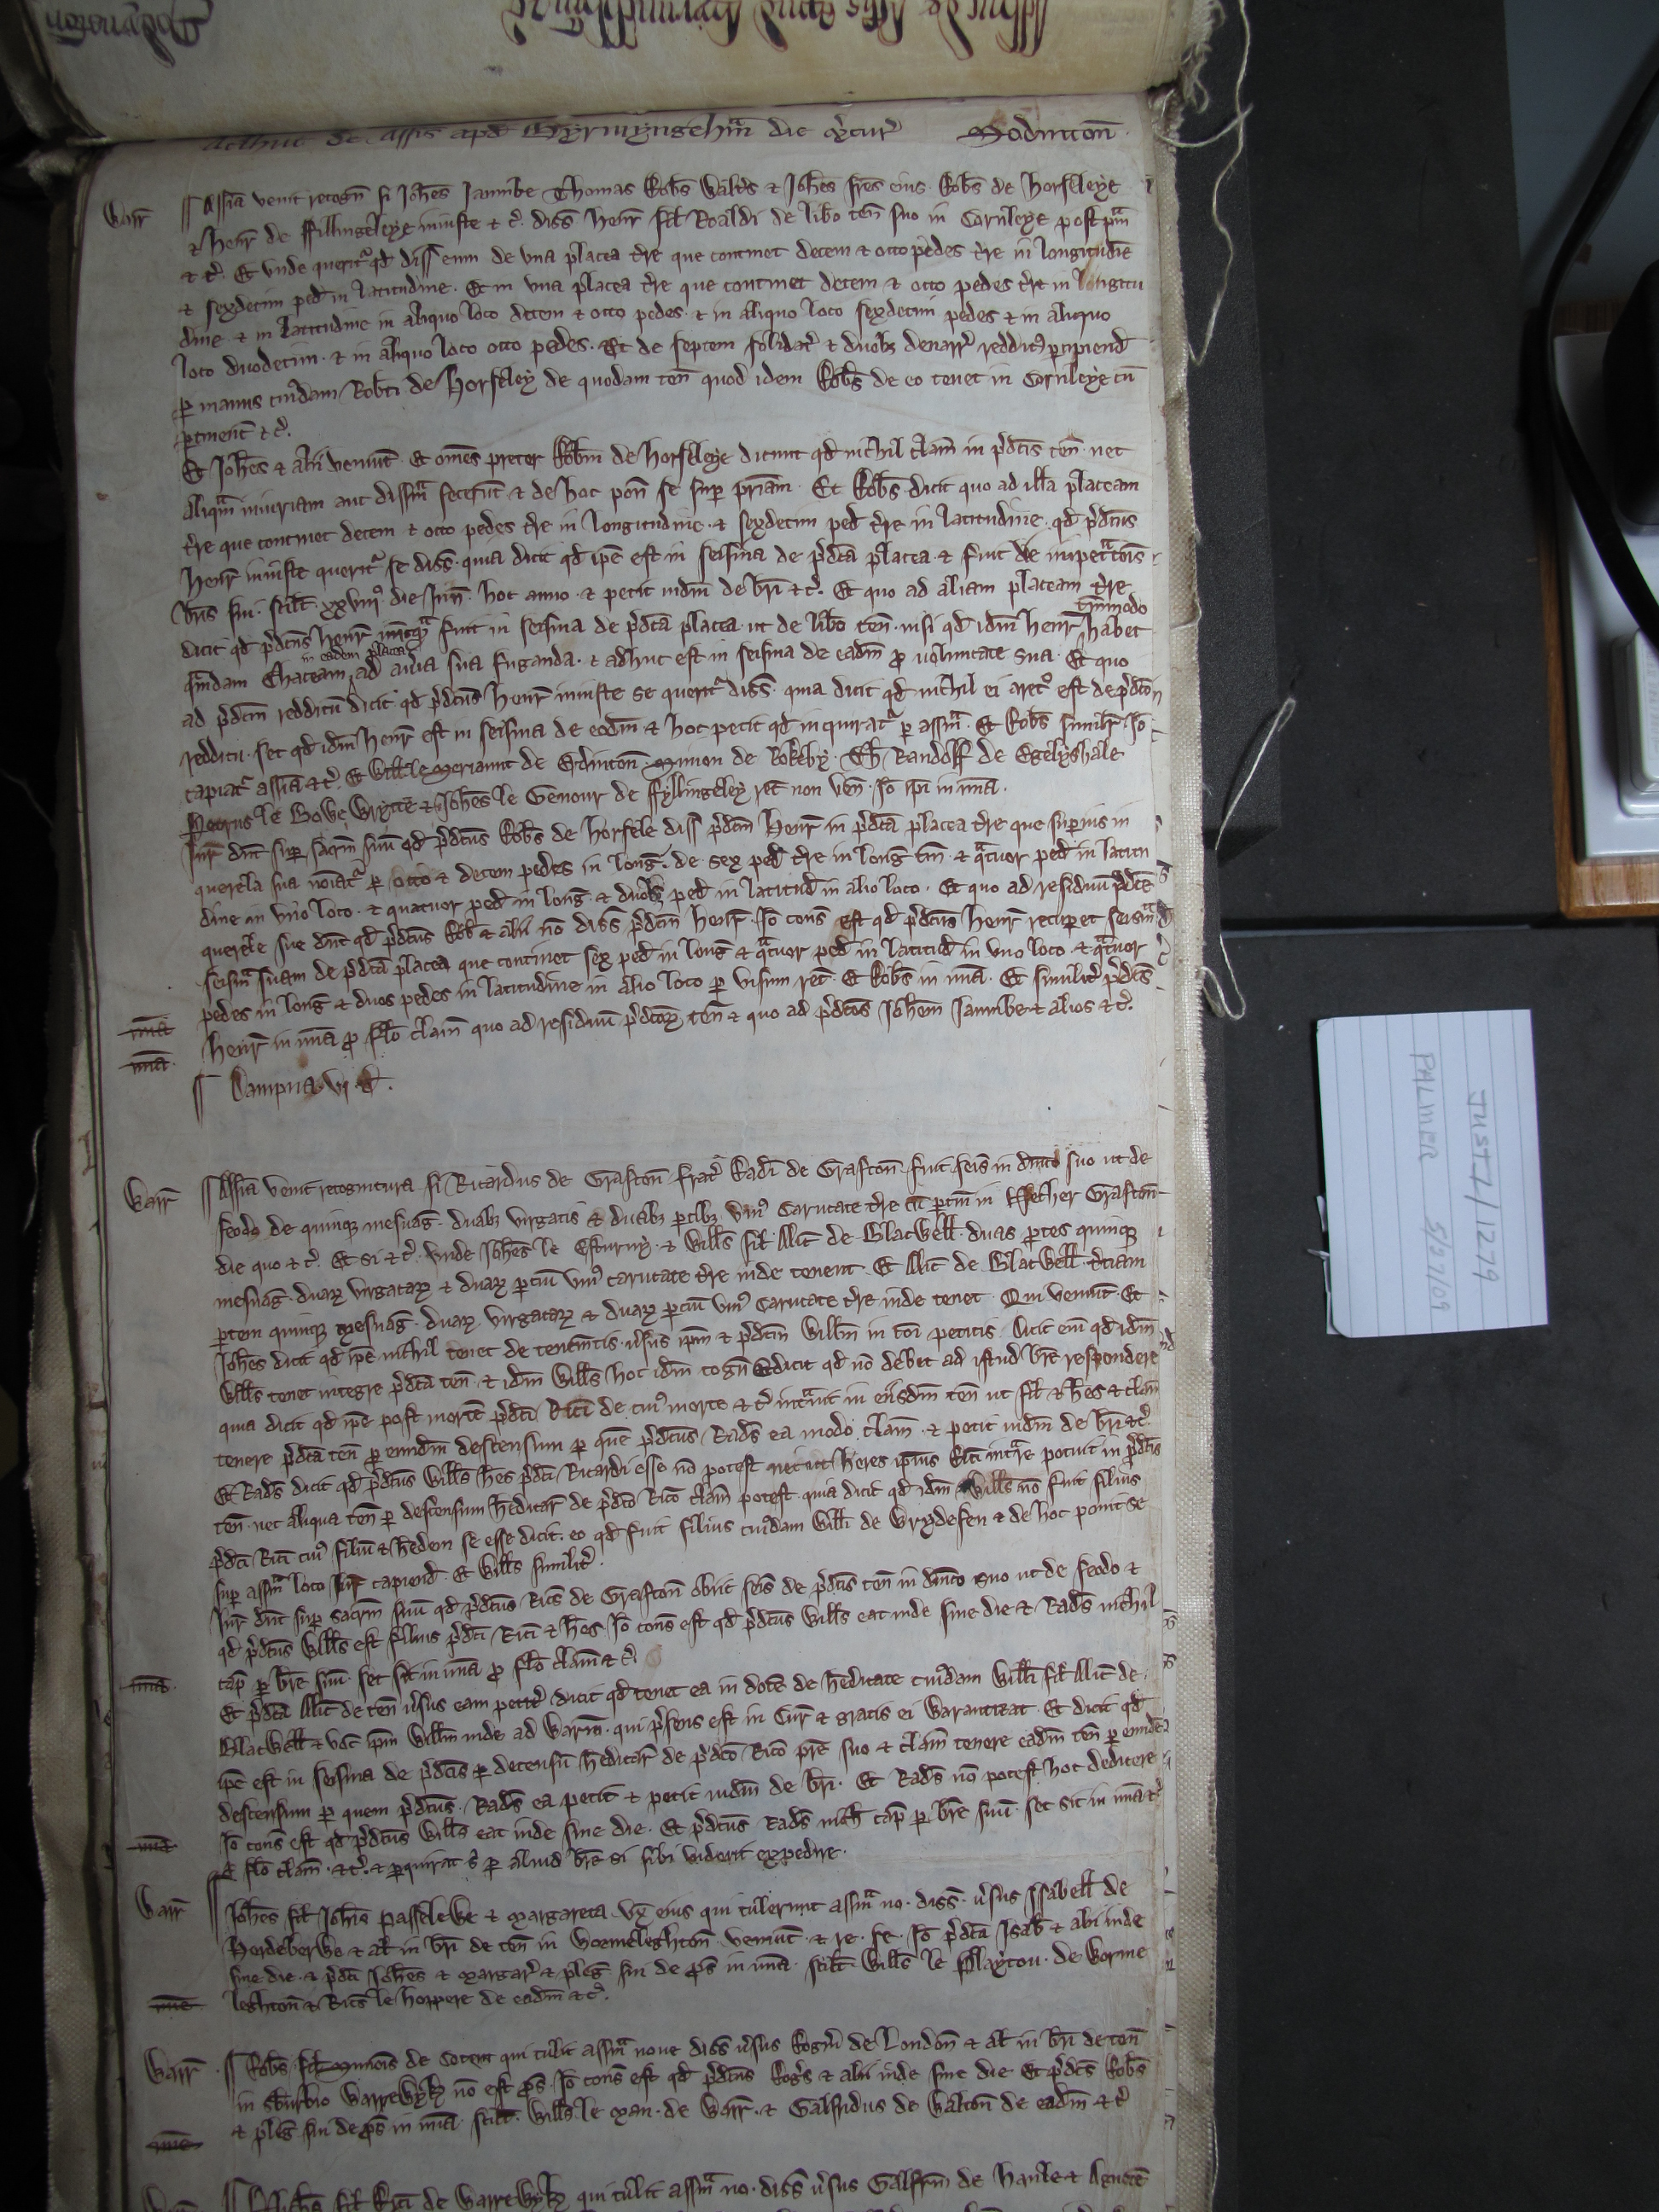 Adhuc de assis apd Byrmyngehm die & Sodinton
Warr Assia venit recogn si Johes Jannibe Thomas Robs Walts & Johes fres eius Robs de Horseleye
& Henr de Ffillingeleye iniuste & c diss Henr fil Roaldi de libo ten suo in Cornleye post pm
& c Et unde querit qd diss eum de una placea tre que continet decem & octo pedes tre in longitudie
& sexdecim ped in latitudine Et in una placea tre que continet decem & octo pedes tre in longitu
dine & in latitudine in aliquo loco decem & octo pedes & in aliquo loco sexdecim pedes & in aliquo
loco duodecim & in aliquo loco octo pedes Et de septem solidat & duobz denarr redditus pcipiend
p manus cuidam Robti de Horseley de quodam ten quod idem Robs de eo tenet in Cornleye cu
ptinent & c
Et Johes & alii veniut Et omes preter Robm de Horseleye dicunt qd nichil clam in pdcis ten nec
aliqm iniuriam aut dissam fecerut & de hoc pon se sup priam Et Robs dicit quo ad illa placeam
tre que continet decem & octo pedes tre in longitudine & sexdecim ped tre in latitudine qd pdcus
Henr iniuste querit se diss quia dicit qd ipe est in seisina de pdca placea & fuit die impetracois
bris sui scilt xxviii die Jun hoc anno & petit iudm de bri & c Et quo ad aliam placeam tre
dicit qd pdcus Henr nuqa fuit in seisina de pdca placea ut de libo ten nisi qd idm Henr tmmodo habet
qmdam Chaceam in eadem placea ad averia sua fuganda & adhuc est in seisina de eadm p voluntate sua Et quo
ad pdcm redditu dicit qd pdcus Henr iniuste se querit diss quia dicit qd nichil ei aretro est de pdco
redditu set qd idm Henr est in seisina de eodm & hoc petit qd inquirat p assam Et Robs similr Io
capiat assia & c Et Will le Meriaunt de Edinton Simon de Rokeby Th Randolf de Egelyshale
Petrus le Bowe Wrytte & Johes le Genour de Ffyllingeley rec non ven Io ipi in mia
Jur dnt sup sacrm suu qd pdcus Robs de Horsele diss pdcm Henr in pdca placea tre que supius in
querela sua noiat p octo & decem pedes in long de sex ped tre in long tm & qatuor ped in latitu
dine in uno loco & quatuor ped in long & duobz ped in latitud in alio loco Et quo ad residuu pdce
querele sue dnt qd pdcus Rob & alii no diss pdcm Henr Io cons est qd pdcus Henr recupet seisinam
seisinam suam de pdca placea que continet sex ped in long & qatuor ped in latitud in uno loco & qatuor
pedes in long & duos pedes in latitudine in alio loco p visum rec Et Robs in mia Et similit pdcus
mia Henr in mia p flo clam quo ad residuu pdcor ten & quo ad pdcos Johem Jannibe & alios & c
mia
Dampna vi d
Warr Assia venit recognitura si Ricardus de Grafton frater Radi de Grafton fuit seis in dnico suo ut de
feodo de quinqz mesuag duabz virgatis & duabz ptibz uni carucate tre cu ptin in Nether Grafton
die quo & c Et si & c unde Johes le Esturmy & Wills fil Alic de Blacwell duas ptes quinqz
mesuag duar virgatar & duar pciu uni carucate tre inde tenent Et Alic de Blacwell tciam
ptem quinqz mesuag duar virgatar & duar pciu uni carucate tre inde tenet Qui veniut Et
Johes dicit qd ipe nichil tenet de tenemtis versus ipm & pdcm Willm in coi petitis Dicit eni qd idm
Wills tenet integre pdca ten & idm Wills hoc idm cogn Et dicit qd no debet ad istud bre respondere
quia dicit qd ipe post morte pdci Rici de cui morte & c intravit in eisdm ten ut fil & hes & clam
tenere pdca ten p eundm descensum p que pdcus Rads ea modo clam & petit iudm de bri & c
Et Rads dicit qd pdcus Wills hes pdci Ricardi esse no potest nec ut heres ipius Rici intrare potuit in pdcis
ten nec aliqua ten p descensum heditar de pdco Rico clam potest quia dicit qd idm Wills no fuit filius
pdci Rici cui filiu & hedem se esse dicit eo qd fuit filius cuidam Willi de Wrydefen & de hoc ponit se
sup assam loco Jur capiend Et Wills similit
Jur dnt sup sacrm suu qd pdcus Rics de Grafton obiit seis de pdcis ten in dnico suo ut de feodo &
qd pdcus Wills est filius pdci Rici & hes Io cons est qd pdcus Wills eat inde sine die & Rads nichil
mia cap p bre suu set sit in mia p flo clam & c
Et pdca Alic de ten versus eam petit dicit qd tenet ea in dote de heditate cuidam Willi fil Alic de
Blacwell & voc ipm Willm inde ad Warrm qui psens est in Cur & gratis ei Warantizat Et dicit qd
ipe est in seisina de pdcis p decensu heditar de pdco Rico pre suo & clam tenere eadm ten p eunde
descensum p quem pdcus Rads ea petit & petit iudm de bri Et Rads no potest hoc dedicere
mia Io cons est qd pdcus Wills eat inde sine die Et pdcus Rads nich cap p bre suu set sit in mia
p flo clam & c & pquirat s p aliud bre si sibi viderit expedire
Warr Johes fil Johis Passelewe & Margareta ux eius qui tulerunt assam no diss versus Isabell de
Herdeberwe & al in bri de ten in Wormeleghton veniut & re se Io pdca Isab & alii inde
sine die & pdci Johes & Margar & pleg sui de ps in mia scilt Wills le Playtou de Worme
mie leghton & Rics le Hoppere de eadm & c
Warr Robs fil Simonis de Coten qui tulit assam noue diss versus Rogm de London & al in bri de ten
in sburbio Warrewyk no est ps Io cons est qd pdcus Rogs & alii inde sine die Et pdcs Robs
mie & pleg sui de ps in mia scilt Wills le Man de Warr & Galfridus de Walton de eadm & c
fil Rici de Warrewyk qui tulit assam no diss versus Galfrm de Hanle & Agnete
JUST 1/1279
PALMER 5/27/09